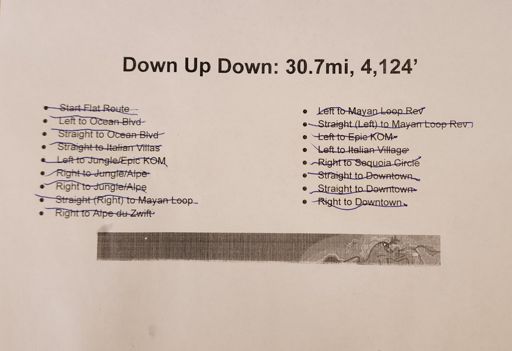 Down Up Down: 30.7mi, 4,124'
Start Flat Route
Left to Ocean Blvd
Straight to Ocean Blvd
Straight to Italian Villas
Left to Jungle/Epic KOM
Right to Jungle/Alpe
Right to Jungle/Alpe
Straight (Right) to Mayan Loop
Right to Alpe du Zwift
Left to Mayan Loop Rev
Straight (Left) to Mayan Loop Rev
Left to Epic KOM
Left to Italian Village
Right to Sequoia Circle
Straight to Downtown
Straight to Downtown
Right to Downtown